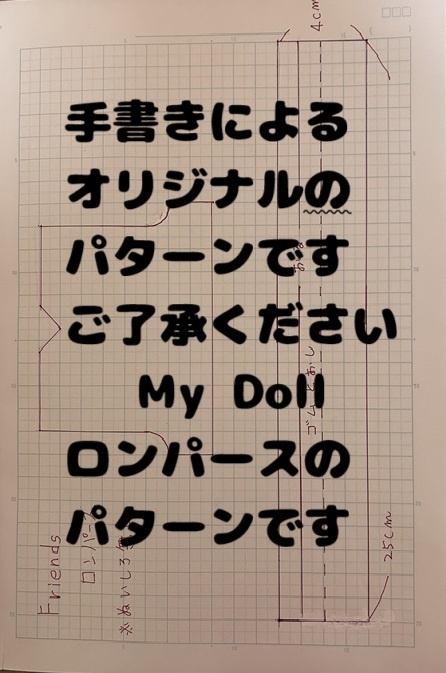 手書きによる
オリジナルの
パターンです
ご了承ください
My Doll
ロンパースの
パターンです
4cm
ゴムとおし
25cm
Friends
ロンパース